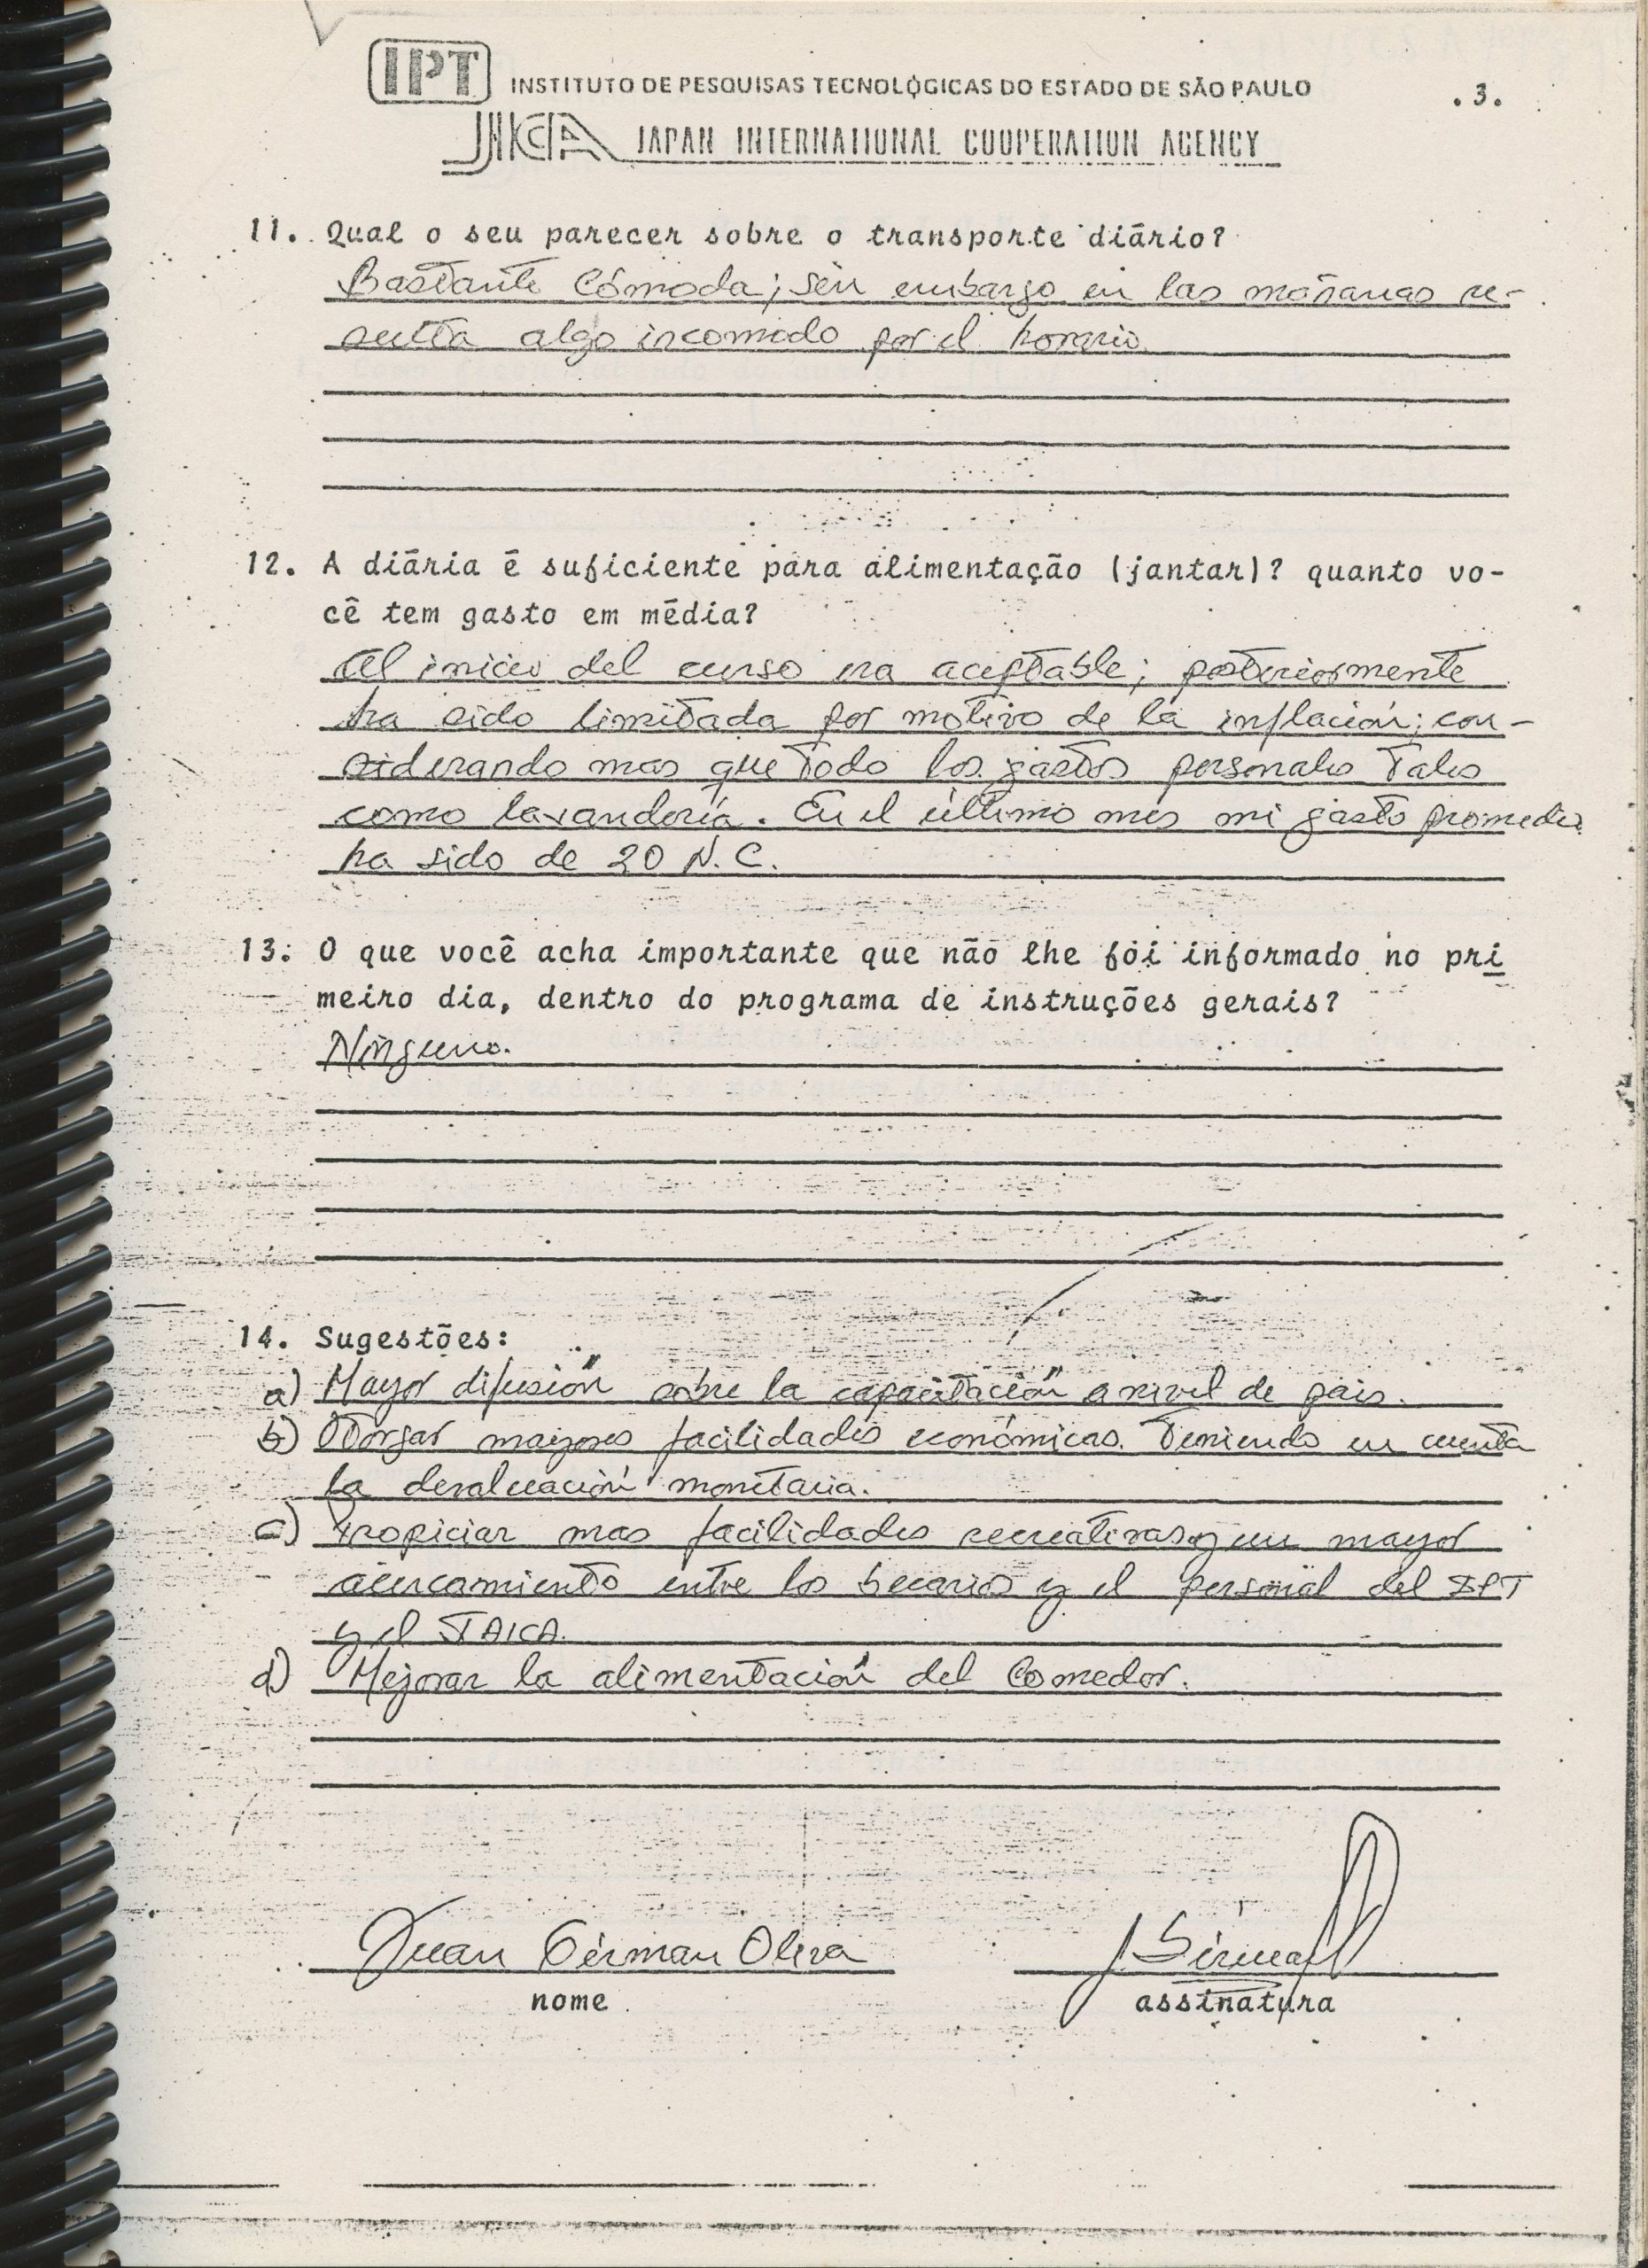 IPT INSTITUTO DE PESQUISAS TECNOLÓGICAS DO ESTADO DE SÃO PAULO
.3.
JICA JAPAN INTERNATIONAL COOPERATION AGENCY
11. Qual o seu parecer sobre o transporte diário?
Bastante Cómoda; sin embargo en las mañanas re-
sulta algo incomodo por el horario.
12. A diária é suficiente para alimentação (jantar)? quanto vo-
cê tem gasto em média?
Al inicio del curso era aceptable; posteriormente
ha sido limitada por motivo de la inflación; con-
siderando mas que todo los gastos personales Tales
como lavandería. En el último mes mi gasto promedio
ha sido de 20 N.C.
13. O que você acha importante que não lhe foi informado no pri
meiro dia, dentro do programa de instruções gerais?
Ninguno.
14. Sugestões:
a) Mayor difusión sobre la capacitación a nivel de pais.
b) Otorgar mayores facilidades económicas. Teniendo en cuenta
la devaluación monetaria.
c) Propiciar mas facilidades recreativas y un mayor
acercamiento entre los becarios y el personal del IPT
y el JAICA.
d) Mejorar la alimentación del Comedor.
Juan Germán Oliva
nome
assinatura